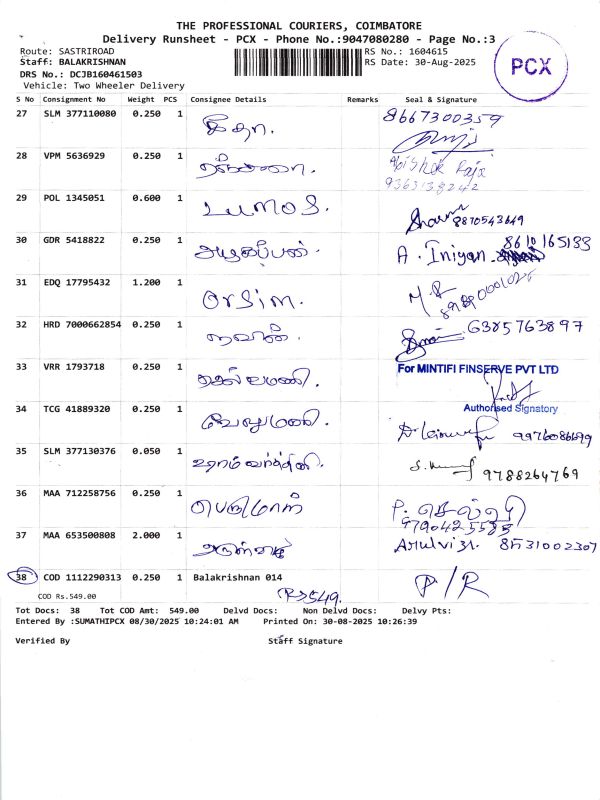 THE PROFESSIONAL COURIERS, COIMBATORE
Delivery Runsheet - PCX - Phone No.:9047080280 - Page No.:3
Route: SASTRIROAD
Staff: BALAKRISHNAN
DRS No.: DCJB160461503
Vehicle: Two Wheeler Delivery
RS No.: 1604615
RS Date: 30-Aug-2025
PCX
S No Consignment No Weight PCS Consignee Details Remarks Seal & Signature
27 SLM 377110080 0.250 1 8667300359
28 VPM 5636929 0.250 1 Abishek Raja
9363138242
29 POL 1345051 0.600 1 Lumos. 8870543649
30 GDR 5418822 0.250 1 அழகப்பன். A. Iniyan 8610165133
31 EDQ 17795432 1.200 1 Orsim.
32 HRD 7000662854 0.250 1 நவீன். 6385763897
33 VRR 1793718 0.250 1 தெய்வமணி. For MINTIFI FINSERVE PVT LTD
Authorised Signatory
34 TCG 41889320 0.250 1 வேலுமணி. 9976086699
35 SLM 377130376 0.050 1 9788264769
36 MAA 712258756 0.250 1 பெருமாள் 9790425585
37 MAA 653500808 2.000 1 8531002307
38 COD 1112290313 0.250 1 Balakrishnan 014 P/R
COD Rs.549.00 Rs549.
Tot Docs: 38 Tot COD Amt: 549.00 Delvd Docs: Non Delvd Docs: Delvy Pts:
Entered By :SUMATHIPCX 08/30/2025 10:24:01 AM Printed On: 30-08-2025 10:26:39
Verified By Staff Signature